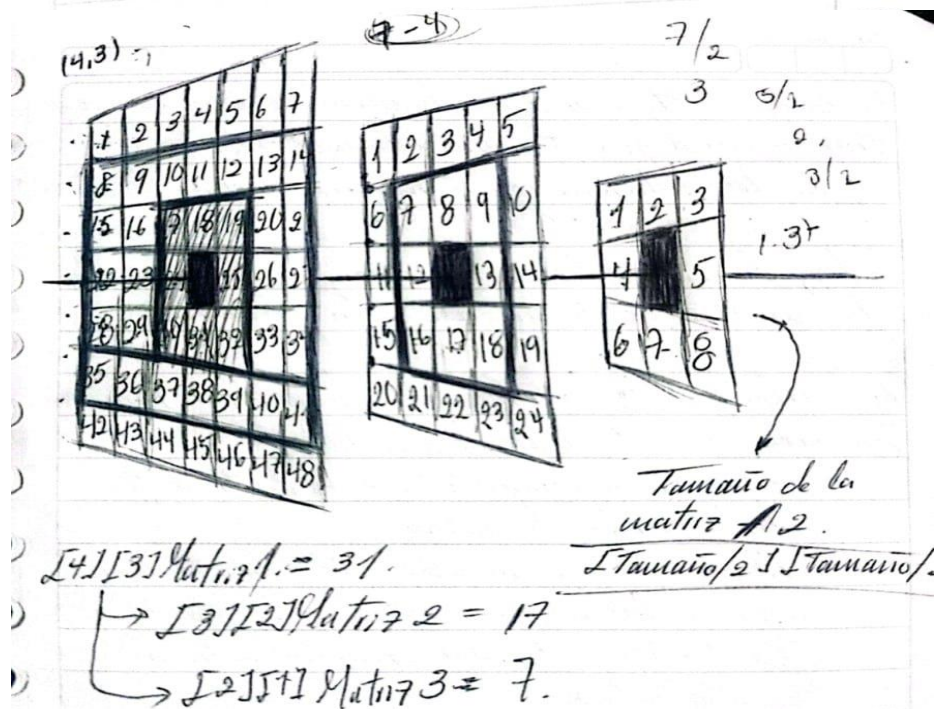 (4,3)
7-4
7/2
3
5/2
2,
3/2
1
1 2 3 4 5 6 7
8 9 10 11 12 13 14
15 16 17 18 19 20 2
22 23 25 26 2
28 29 30 31 32 33 3
35 36 37 38 39 40 4
42 43 44 45 46 47 48
1 2 3 4 5
6 7 8 9 10
11 12 13 14
15 16 17 18 19
20 21 22 23 24
1 2 3
4 5
6 7 8
Tamaño de la
matriz 1.2.
[Tamaño/2][Tamaño/
[4][3]Matriz1.= 31.
[3][2]Matriz 2 = 17
[2][1] Matriz 3= 7.